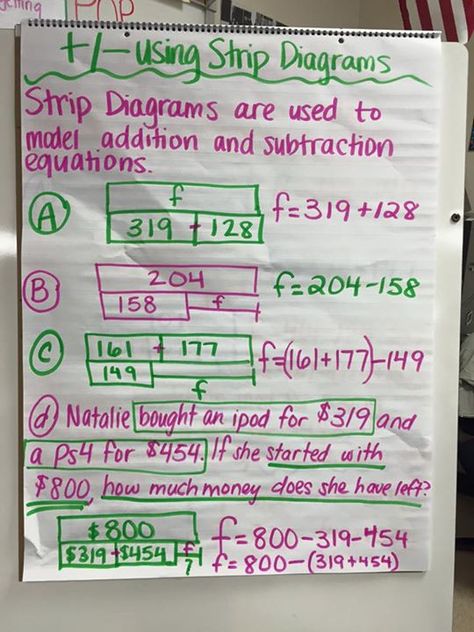 POP
+/- using Strip Diagrams
Strip Diagrams are used to
model addition and subtraction
equations.
A
f
319 + 128
f=319+128
B
204
158 f
f=204-158
C
161 + 177
149
f
f=(161+177)-149
d Natalie bought an ipod for $319 and
a PS4 for $454. If she started with
$800, how much money does she have left?
$800
$319 + $454 f
?
f=800-319-454
f=800-(319+454)